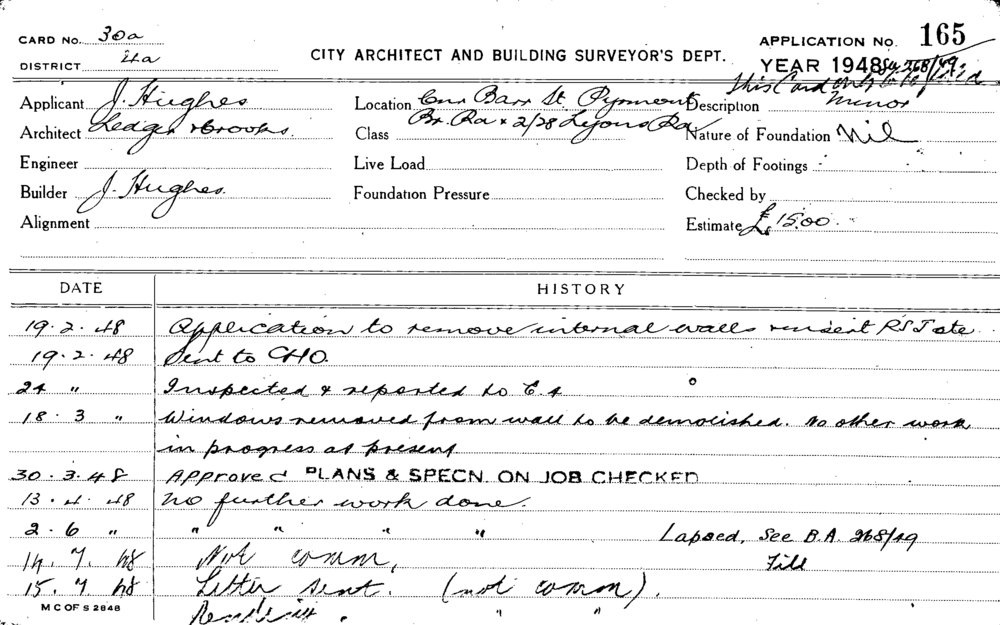 CARD No. 30a
DISTRICT 4a
CITY ARCHITECT AND BUILDING SURVEYOR'S DEPT.
APPLICATION No. 165
YEAR 1948 268/49
This Card only to be filed
Applicant J. Hughes
Location Cnr Barr St. Pyrmont
Description Minor
Architect Ledger & Brooks.
Br. Rd & 2/28 Lyons Rd
Class
Nature of Foundation Nil
Engineer
Live Load
Depth of Footings
Builder J. Hughes.
Foundation Pressure
Checked by
Alignment
Estimate £1500
DATE HISTORY
19.2.48 Application to remove internal walls & insert RSJ etc.
19.2.48 Sent to CHO.
24 " Inspected & reported to C.A
18.3 " Windows removed from wall to be demolished. No other work
in progress at present
30.3.48 Approved PLANS & SPECN. ON JOB CHECKED
13.4.48 No further work done.
2.6 " " " " " Lapsed, See B.A. 268/49
14.7.48 Not comm, File
15.7.48 Letter sent. (not comm).
M C OF S 2848 " "